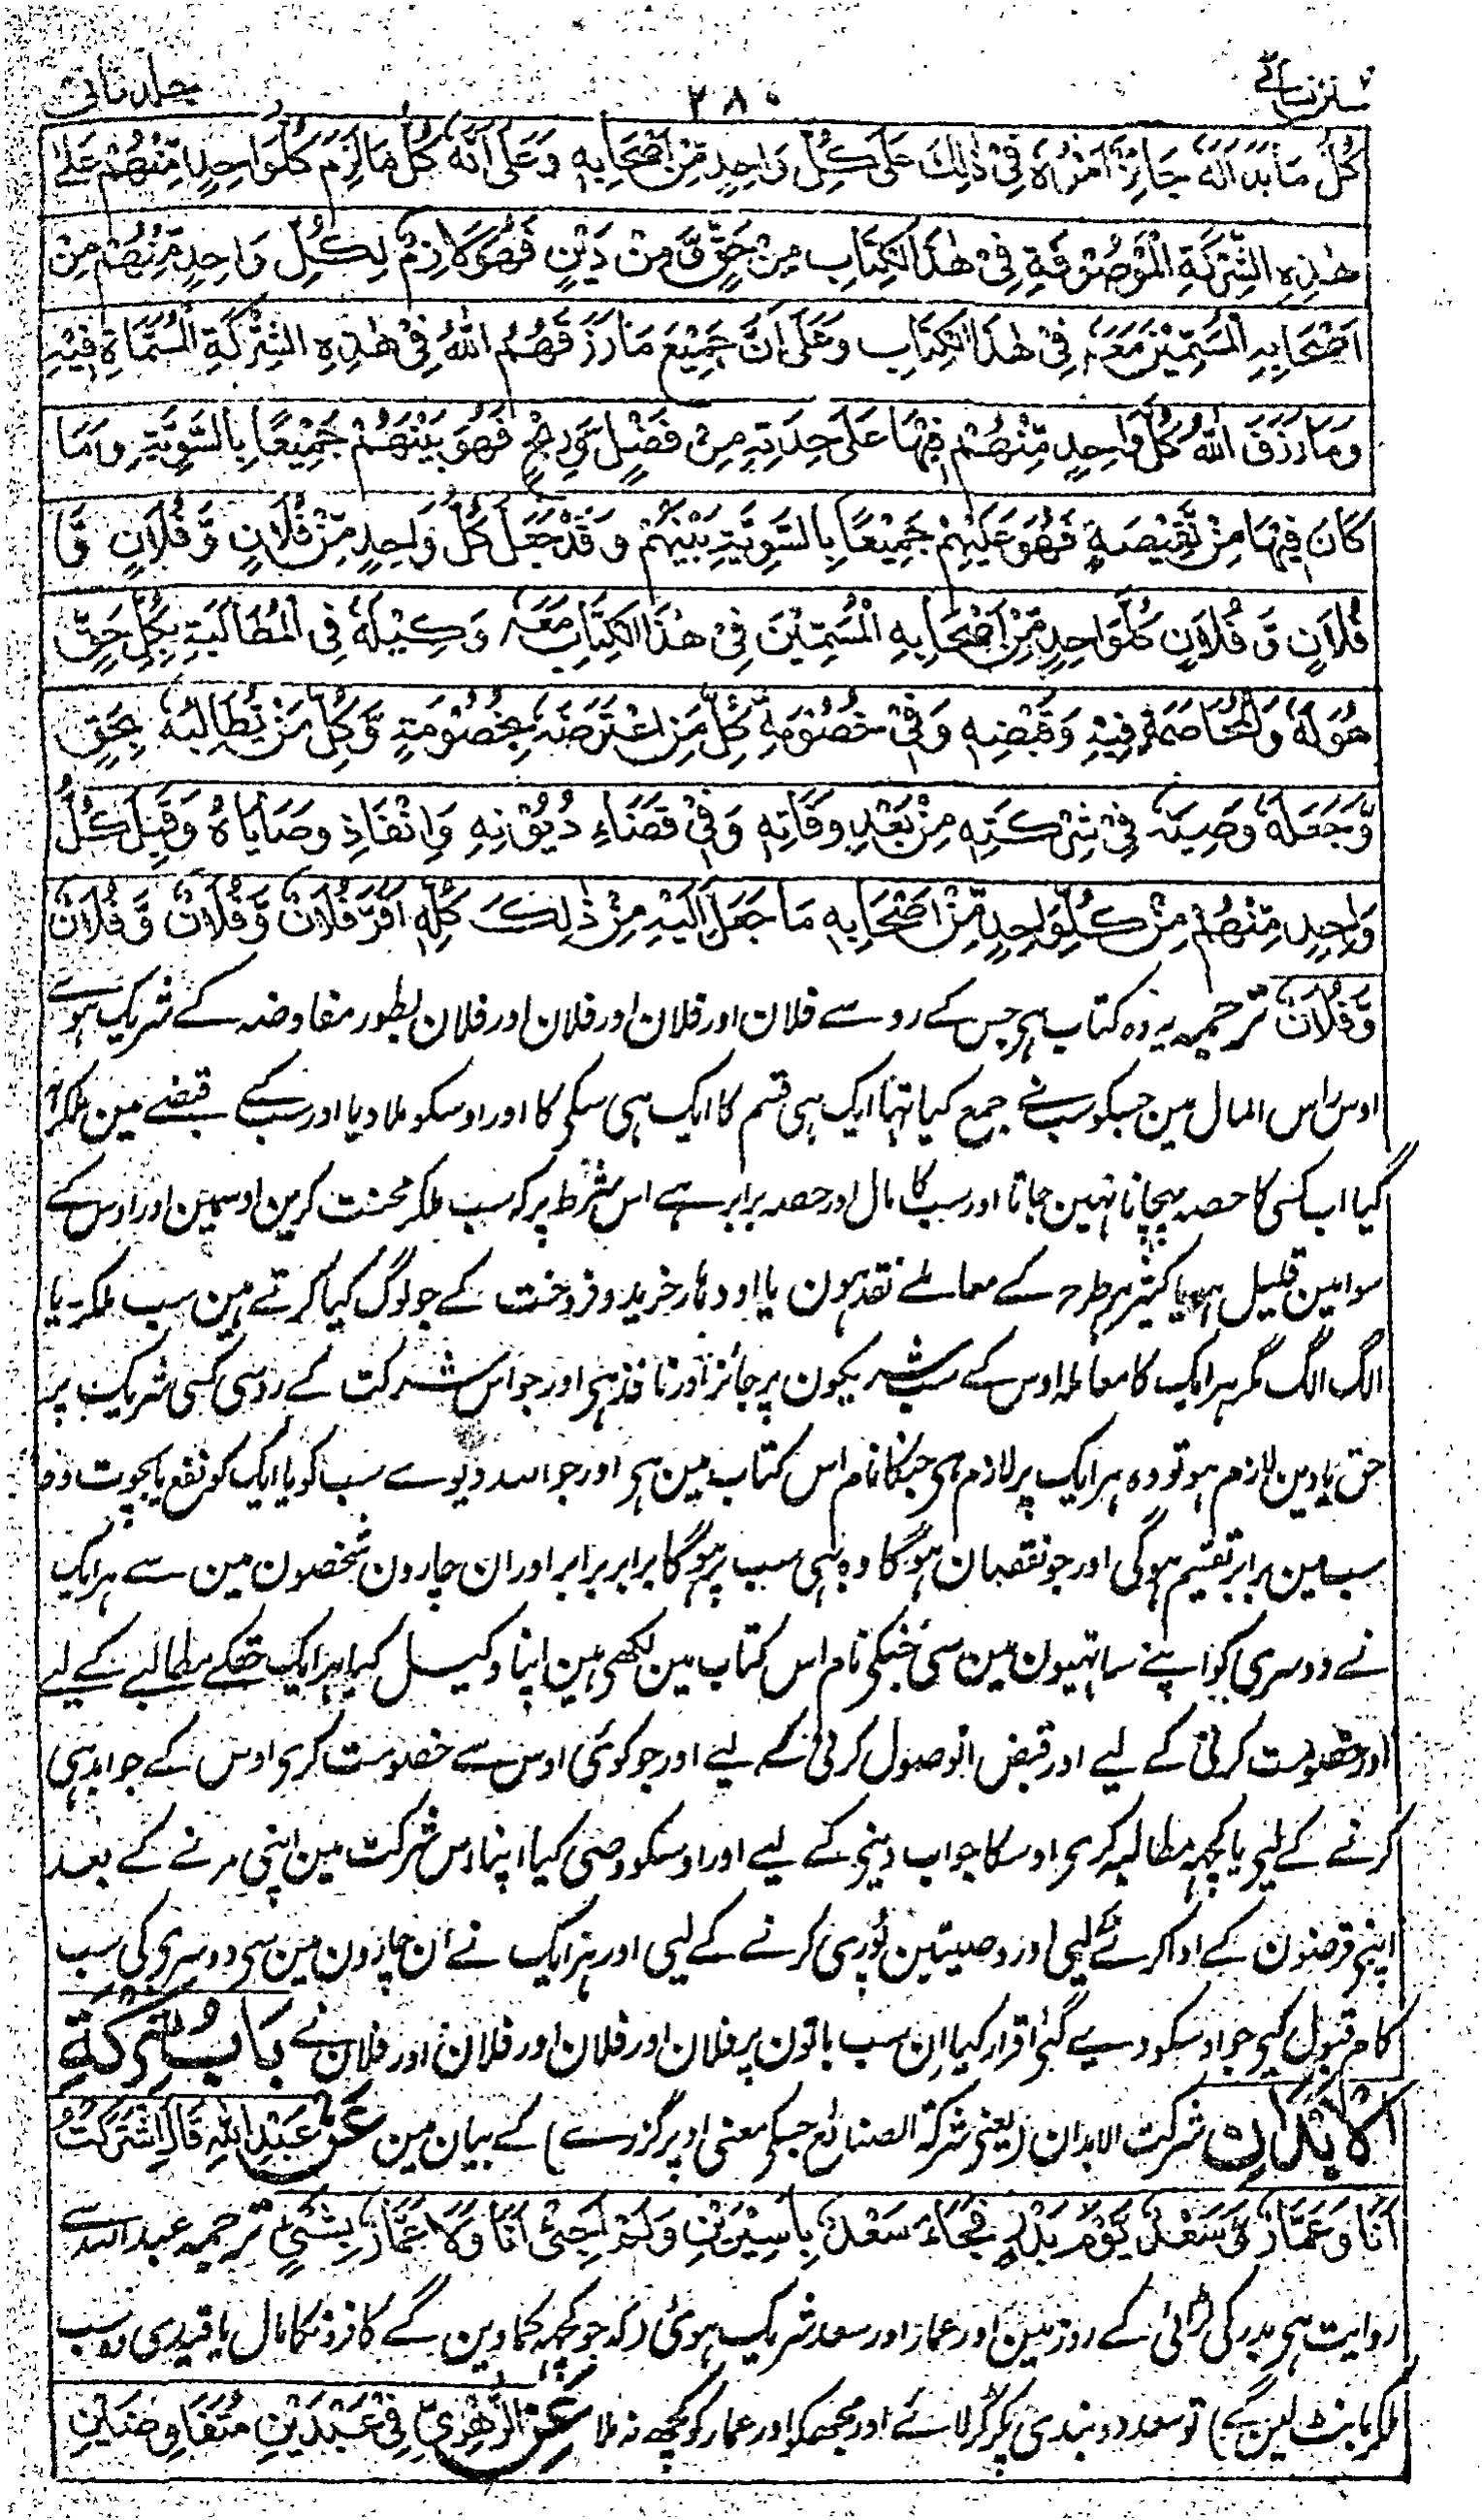 سنن نسائی ۲۸۰ جلد ثانی
كُلَّ مَا بَدَا لَهٗ جَائِزٌ اَمْرُهٗ فِیْ ذٰلِكَ عَلٰی كُلِّ وَاحِدٍ مِّنْ اَصْحَابِهٖ وَعَلٰی اَنَّهٗ كُلُّ مَا لَزِمَ كُلَّ وَاحِدٍ مِّنْهُمْ عَلٰی
هٰذِهِ الشِّرْكَةِ الْمَوْصُوْفَةِ فِیْ هٰذَا الْكِتَابِ مِنْ حَقٍّ وَّمِنْ دَیْنٍ فَهُوَ لَازِمٌ لِكُلِّ وَاحِدٍ مِّنْهُمْ مِنْ
اَصْحَابِهِ الْمُسَمِّیْنَ مَعَهٗ فِیْ هٰذَا الْكِتَابِ وَعَلٰی اَنَّ جَمِیْعَ مَا رَزَقَهُمُ اللّٰهُ فِیْ هٰذِهِ الشِّرْكَةِ الْمُسَمَّاةِ فِیْهِ
وَمَا رَزَقَ اللّٰهُ كُلَّ وَاحِدٍ مِّنْهُمْ فِیْهَا عَلٰی حِدَتِهٖ مِنْ فَضْلٍ وَّرِبْحٍ فَهُوَ بَیْنَهُمْ جَمِیْعًا بِالسَّوِیَّةِ وَمَا
كَانَ فِیْهَا مِنْ نَّقِیْصَةٍ فَهُوَ عَلَیْهِمْ جَمِیْعًا بِالسَّوِیَّةِ بَیْنَهُمْ وَقَدْ جَعَلَ كُلُّ وَاحِدٍ مِّنْ فُلَانٍ وَّفُلَانٍ وَّ
فُلَانٍ وَّفُلَانٍ كُلَّ وَاحِدٍ مِّنْ اَصْحَابِهِ الْمُسَمِّیْنَ فِیْ هٰذَا الْكِتَابِ مَعَهٗ وَكِیْلَهٗ فِی الْمُطَالَبَةِ بِكُلِّ حَقٍّ
هُوَ لَهٗ وَالْمُخَاصَمَةِ فِیْهِ وَقَبْضِهٖ وَفِیْ خُصُوْمَةِ كُلِّ مَنِ اعْتَرَضَهٗ بِخُصُوْمَةٍ وَّكُلِّ مَنْ یُّطَالِبُهٗ بِحَقٍّ
وَّجَعَلَهٗ وَصِیَّهٗ فِیْ شِرْكَتِهٖ مِنْ بَعْدِ وَفَاتِهٖ وَفِیْ قَضَاءِ دُیُوْنِهٖ وَاِنْفَاذِ وَصَایَاهُ وَقَبِلَ كُلُّ
وَاحِدٍ مِّنْهُمْ مِنْ كُلِّ وَاحِدٍ مِّنْ اَصْحَابِهٖ مَا جَعَلَ اِلَیْهِ مِنْ ذٰلِكَ كُلِّهٖ اَقَرَّ فُلَانٌ وَّفُلَانٌ وَّفُلَانٌ
وَّفُلَانٌ ترجمہ یہ وہ کتاب ہی جس کے رو سے فلان اور فلان اور فلان اور فلان بطور مفاوضہ کے شریک ہوے
اوس راس المال مین جسکو سب نے جمع کیا تہا ایک ہی قسم کا ایک ہی سکی کا اور اوسکو ملا دیا اور سب کے قبضے مین ملکر آ
گیا اب کسی کا حصہ پہچانا نہین جاتا اور سب کا مال اور حصہ برابر ہے اس شرط پر کہ سب ملکر محنت کرین اوسمین اور اوس کے
سوا مین قلیل ہو یا کثیر ہر طرح کے معاملے نقد ہون یا اودہار خرید و فروخت کے جو لوگ کیا کرتے ہین سب ملکر یا
الگ الگ مگر ہر ایک کا معاملہ اوس کے سب شریکون پر جائز اور نافذ ہی اور جو اس شرکت کے روسی کسی شریک پر
حق یا دین لازم ہو تو وہ ہر ایک پر لازم ہی جنکا نام اس کتاب مین ہی اور جو اللہ دیوے سب کو یا ایک کو نفع یا بچوت وہ
سب مین برابر تقسیم ہوگی اور جو نقصان ہوگا وہ بہی سب پر ہوگا برابر برابر اور ان چارون شخصون مین سے ہر ایک
نے دوسری کو اپنے ساتہیون مین سی جنکی نام اس کتاب مین لکھی ہین اپنا وکیل کیا ہر ایک حق کے مطالبے کے لیے
اور خصومت کرنی کے لیے اور قبض اور وصول کرنی کے لیے اور جو کوئی اوس سے خصومت کری اوس کے جوابدہی
کرنے کے لیی یا کچہہ مطالبہ کری اوسکا جواب دینی کے لیے اور اوسکو وصی کیا اپنا اس شرکت مین اپنی مرنے کے بعد
اپنی قرضون کے ادا کرنے کے لیی اور وصیتین پوری کرنے کے لیی اور ہر ایک نے ان چارون مین سی دوسری کی سب
کام قبول کیی جو اوسکو دیے گئی اقرار کیا ان سب باتون پر فلان اور فلان اور فلان اور فلان نے بَابُ شَرِكَةِ
الْاَبْدَانِ شرکت الابدان (یعنی شرکۃ الصنائع جسکی معنی اوپر گزرے) کے بیان مین عَنْ عَبْدِ اللّٰهِ قَالَ اشْتَرَكْتُ
اَنَا وَعَمَّارٌ وَّسَعْدٌ یَوْمَ بَدْرٍ فَجَاءَ سَعْدٌ بِاَسِیْرَیْنِ وَلَمْ اَجِیْ اَنَا وَلَا عَمَّارٌ بِشَیْءٍ ترجمہ عبد اللہ سے
روایت ہی بدر کی لڑائی کے روز مین اور عمار اور سعد شریک ہوئی (کہ جو کچہہ کماوین گے کافرونکا مال یا قیدی وہ سب
ملکر بانٹ لین گے) تو سعد دو بندی پکڑ لائے اور مجھکو اور عمار کو کچھ نہ ملا عَنِ الزُّهْرِیِّ فِیْ عَبْدَیْنِ مُتَفَاوِضَیْنِ